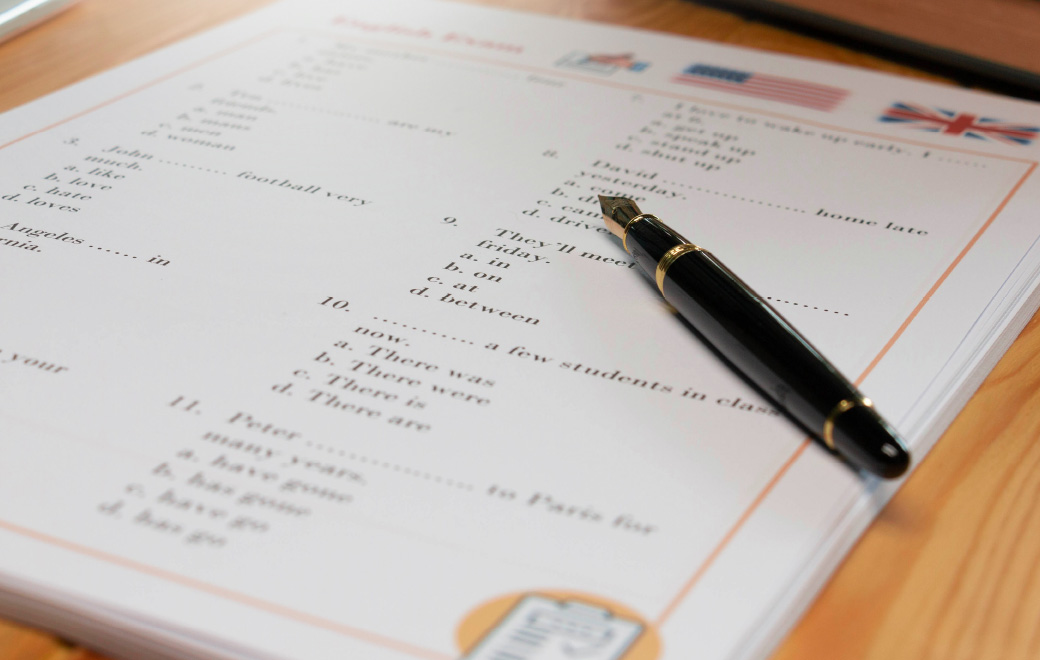 English Exam
2. ............... are my
friends.
a. man
b. mans
c. men
d. woman
3. John ......... football very
much.
a. like
b. love
c. hate
d. loves
Angeles ...... in
your
7. I have to wake up early. I ......
at 6.
a. get up
b. speak up
c. stand up
d. shut up
8. David .................. home late
yesterday.
a.
b.
c.
d. drive
9. They'll meet ..........
friday.
a. in
b. on
c. at
d. between
10. .......... a few students in class
now.
a. There was
b. There were
c. There is
d. There are
11. Peter ................... to Paris for
many years.
a. have gone
b. has gone
c. have go
d. has go